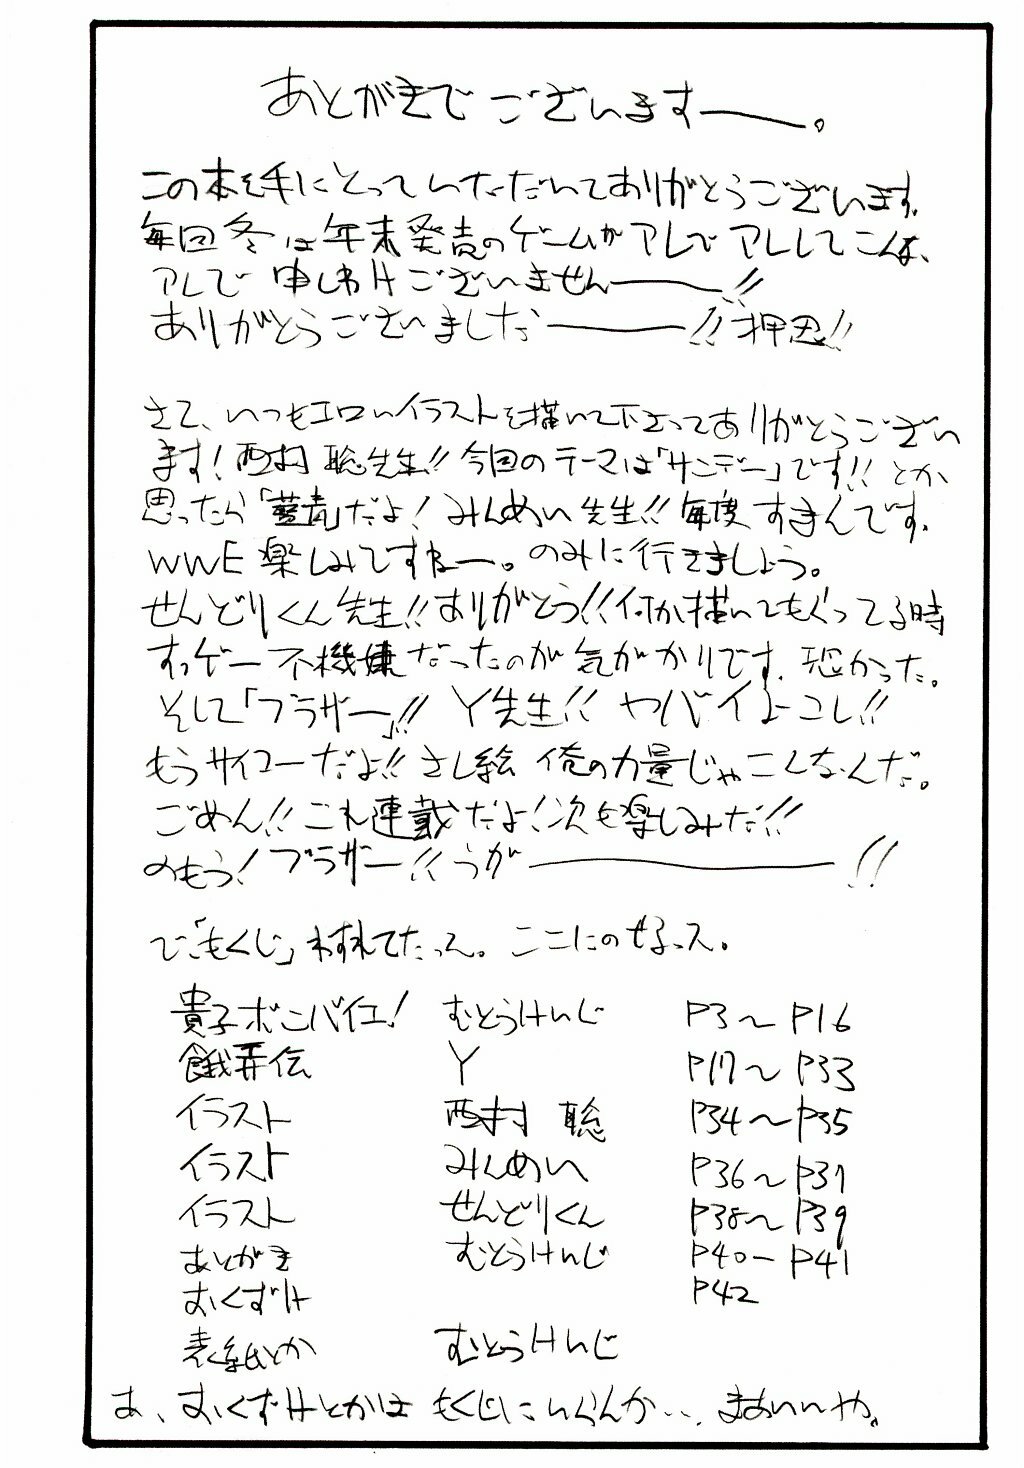 あとがきでございますー。
この本を手にとっていただいてありがとうございます。
毎回冬は年末発売のゲームがアレでアレしてこんな、
アレで申しわけございませんー!!
ありがとうございましたー!!押忍!!
さて、いつもエロいイラストを描いて下さってありがとうござい
ます!西村聡先生!!今回のテーマは「サンデー」です!!とか
思ったら「藍青」だよ!みんめい先生!!毎度すまんです。
WWE楽しみですねー。のみに行きましょう。
せんどりくん先生!!ありがとう!!何か描いてもぐってる時
すっげー不機嫌だったのが気がかりです。恐かった。
そして「ブラザー」!!Y先生!!ヤバイよーコレ!!
もうサイコーだよ!!さし絵俺の力量じゃこんなんだ。
ごめん!!これ連載だよ!次も楽しみだ!!
のもう!ブラザー!!うがー!!
で、「もくじ」わすれてたって。ここにのせるっス。
貴子ボンバイエ! むとうけいじ P3〜P16
餓弄伝 Y P17〜P33
イラスト 西村 聡 P34〜P35
イラスト みんめい P36〜P37
イラスト せんどりくん P38〜P39
あとがき むとうけいじ P40ーP41
おくずけ P42
表紙とか むとうけいじ
あ、おくずけとかはもくじにいらんか…。まあいいや。